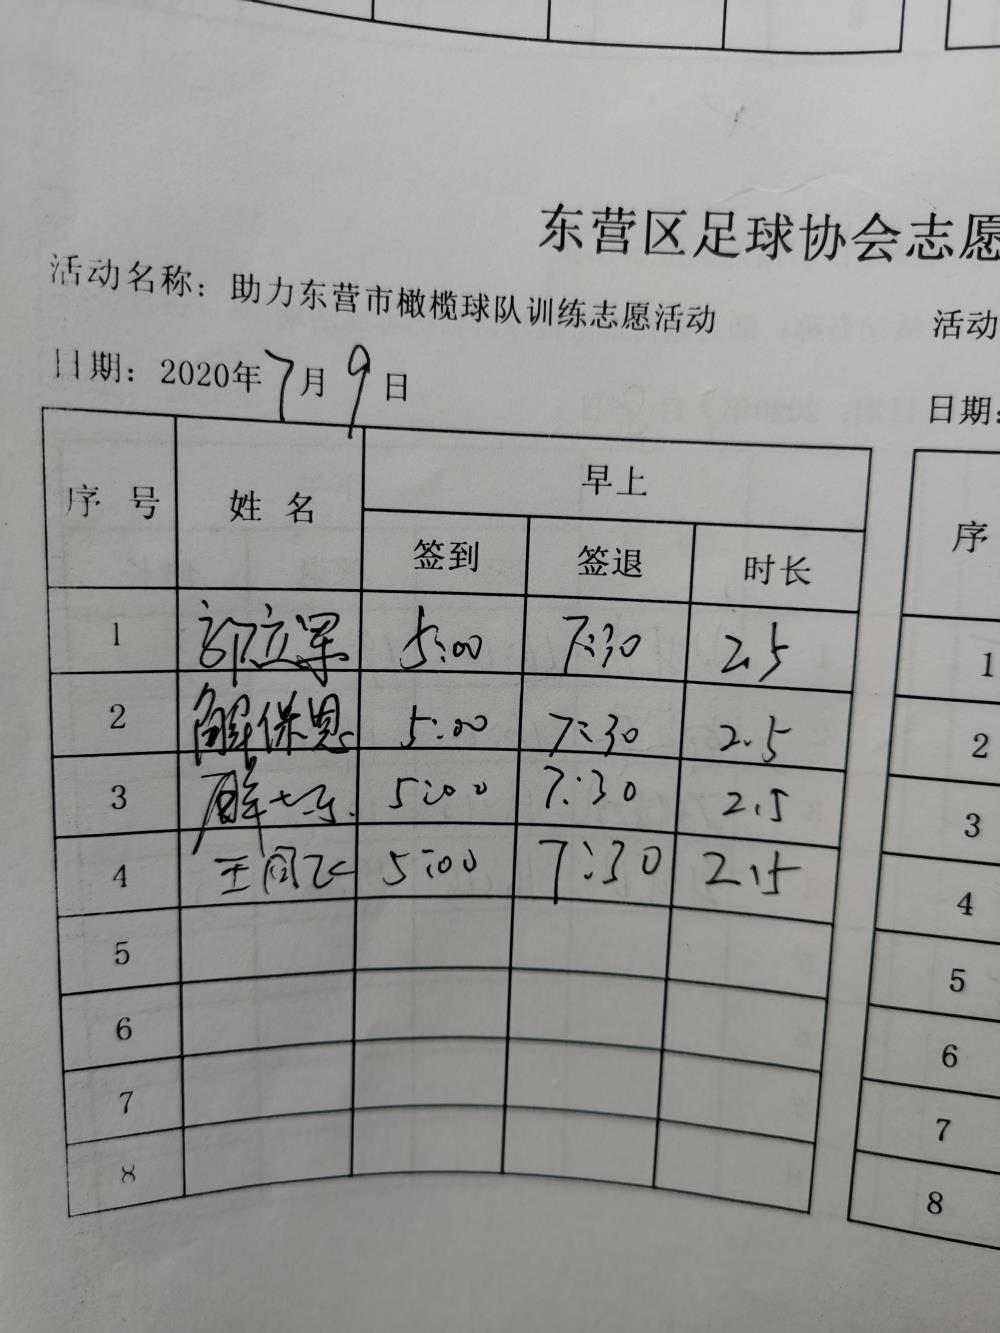 东营区足球协会志愿
活动名称：助力东营市橄榄球队训练志愿活动
活动
日期：2020年7月9日
日期：
序号 姓名 早上
签到 签退 时长
序
1 郭立军 5:00 7:30 2.5
2 解保恩 5:00 7:30 2.5
3 5:00 7:30 2.5
4 王同飞 5:00 7:30 2.5
5
6
7
8
1
2
3
4
5
6
7
8